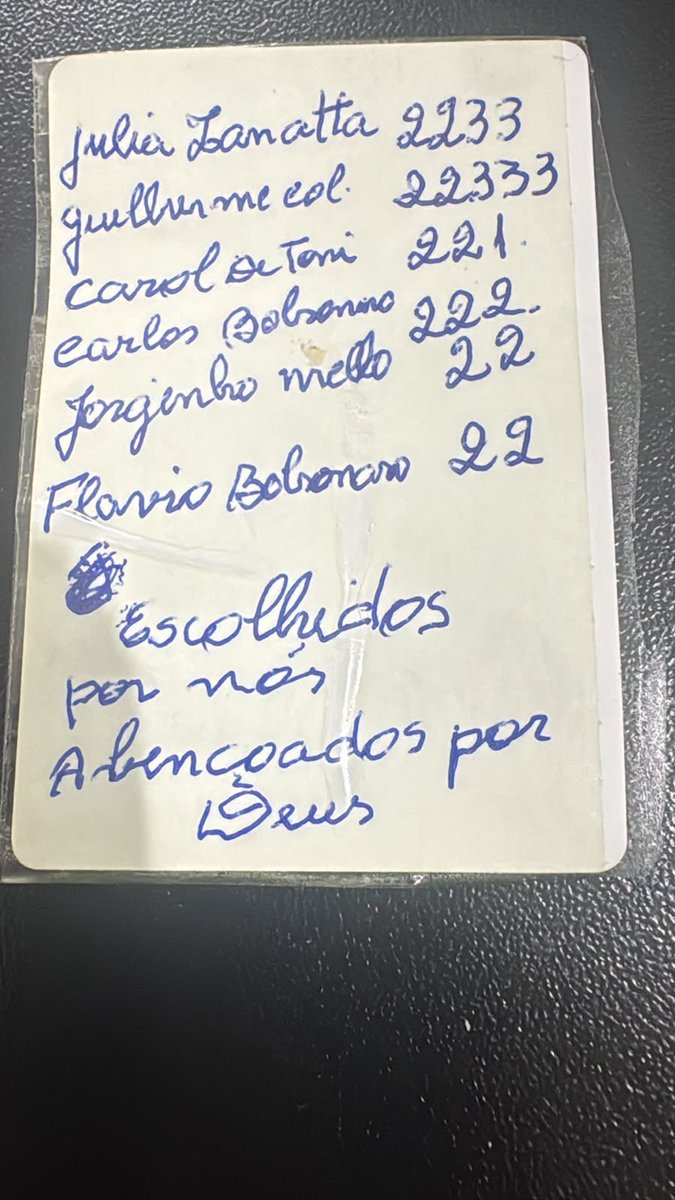 Julia Zanatta 2233
guilherme col. 22333
carol De Toni 221.
carlos Bolsonaro 222.
Jorginho mello 22
Flavio Bolsonaro 22
Escolhidos
por nós
Abençoados por
Deus